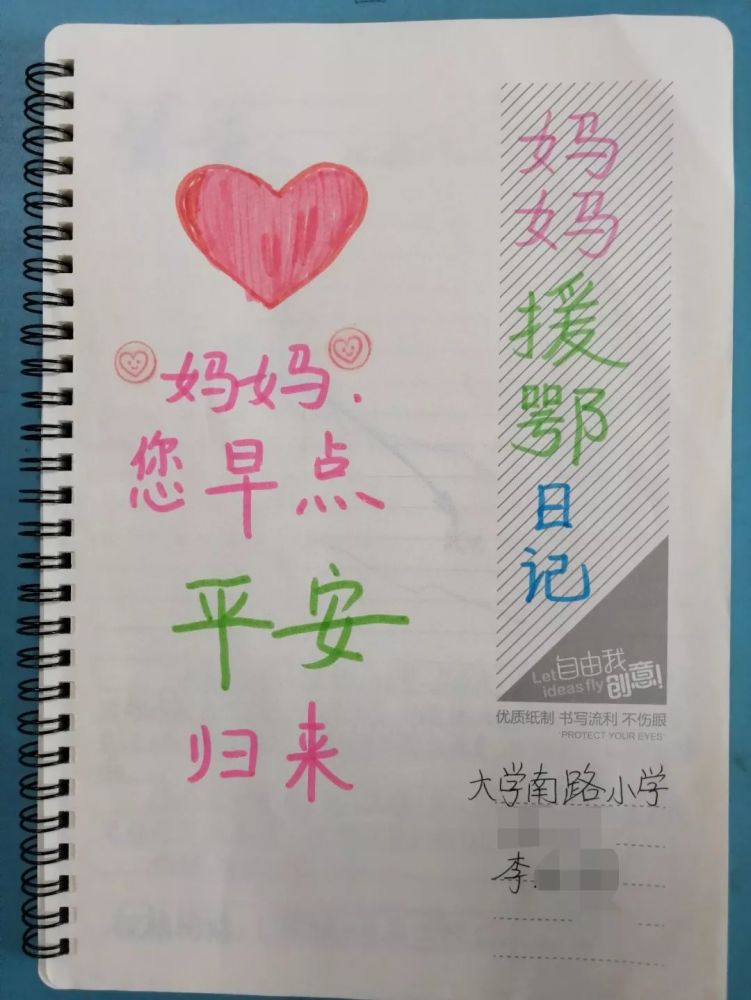 妈妈.
您早点
平安
归来
妈妈援鄂日记
Let 自由我
ideas fly 创意!
优质纸制 书写流利 不伤眼
"PROTECT YOUR EYES"
大学南路小学
李